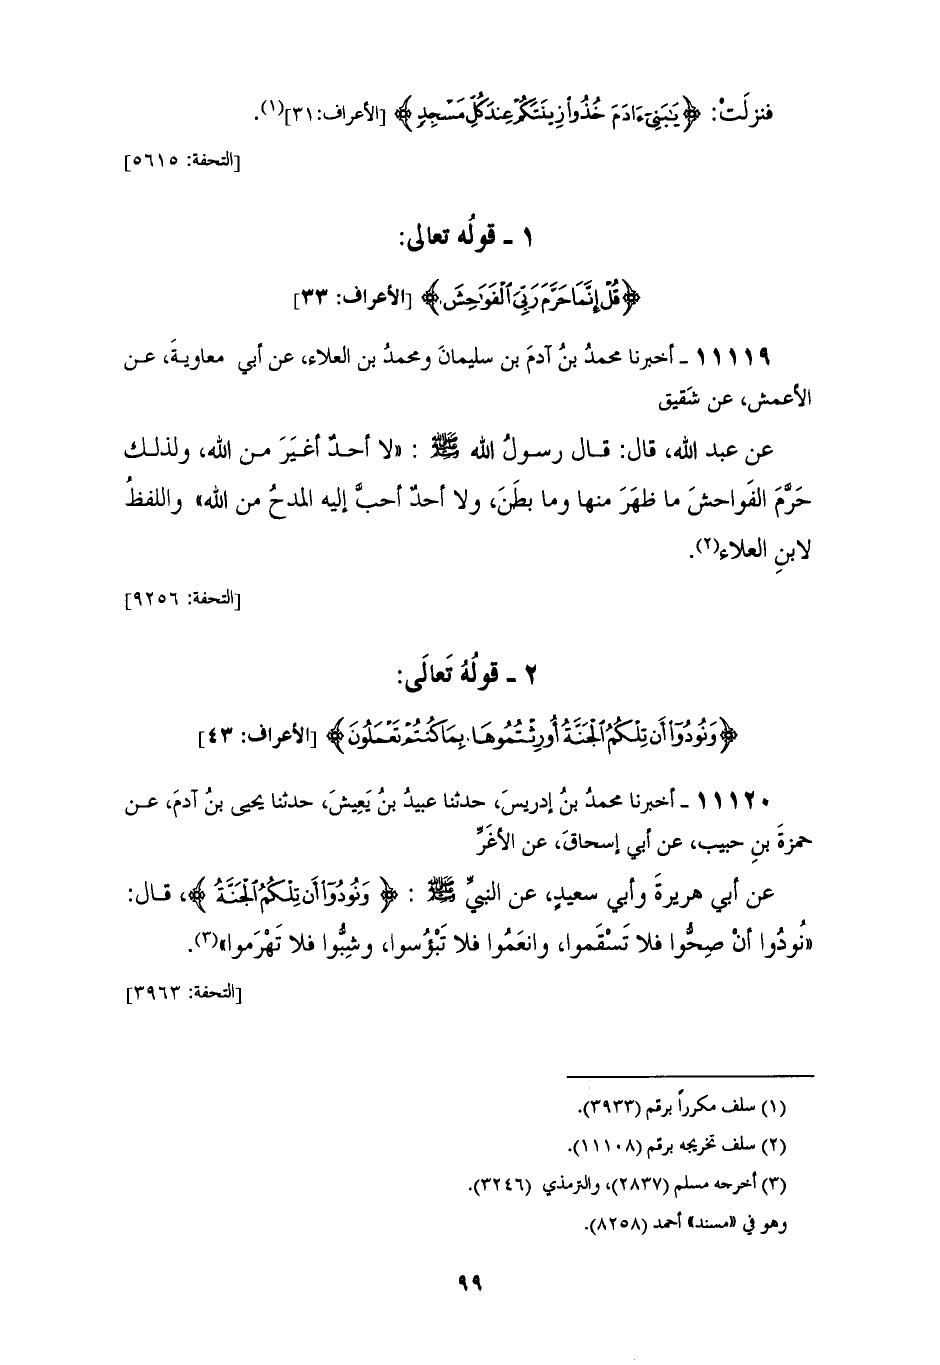 فنزلَتْ: ﴿يَٰبَنِىٓ ءَادَمَ خُذُوا۟ زِينَتَكُمْ عِندَ كُلِّ مَسْجِدٍ﴾ [الأعراف: ٣١](١).
[التحفة: ٥٦١٥]
١ ـ قولُه تعالى:
﴿قُلْ إِنَّمَا حَرَّمَ رَبِّىَ ٱلْفَوَٰحِشَ﴾ [الأعراف: ٣٣]
١١١١٩ ـ أخبرنا محمدُ بنُ آدمَ بن سليمانَ ومحمدُ بن العلاء، عن أبي معاويةَ، عـن
الأعمش، عن شَقيق
عن عبد الله، قال: قـال رسـولُ الله ﷺ : «لا أحـدٌ أغيَرَ مـن الله، ولذلـك
حَرَّمَ الفَواحشَ ما ظهَرَ منها وما بطَنَ، ولا أحدٌ أحبَّ إليه المدحُ من الله» واللفظُ
لابنِ العلاءِ(٢).
[التحفة: ٩٢٥٦]
٢ ـ قولُهُ تَعالَى:
﴿وَنُودُوٓا۟ أَن تِلْكُمُ ٱلْجَنَّةُ أُورِثْتُمُوهَا بِمَا كُنتُمْ تَعْمَلُونَ﴾ [الأعراف: ٤٣]
١١١٢٠ ـ أخبرنا محمدُ بنُ إدريسَ، حدثنا عبيدُ بنُ يَعِيشَ، حدثنا يحيى بنُ آدمَ، عـن
حمزةَ بنِ حبيب، عن أبي إسحاقَ، عن الأغَرِّ
عن أبي هريرةَ وأبي سعيدٍ، عن النبيِّ ﷺ : ﴿وَنُودُوٓا۟ أَن تِلْكُمُ ٱلْجَنَّةُ﴾، قـال:
«نُودُوا أنْ صِحُّوا فلا تَسْقَموا، وانعَمُوا فلا تَبْؤُسوا، وشِبُّوا فلا تَهْرَموا»(٣).
[التحفة: ٣٩٦٣]
(١) سلف مكرراً برقم (٣٩٣٣).
(٢) سلف تخريجه برقم (١١١٠٨).
(٣) أخرجه مسلم (٢٨٣٧)، والترمذي (٣٢٤٦).
وهو في «مسند» أحمد (٨٢٥٨).
٩٩